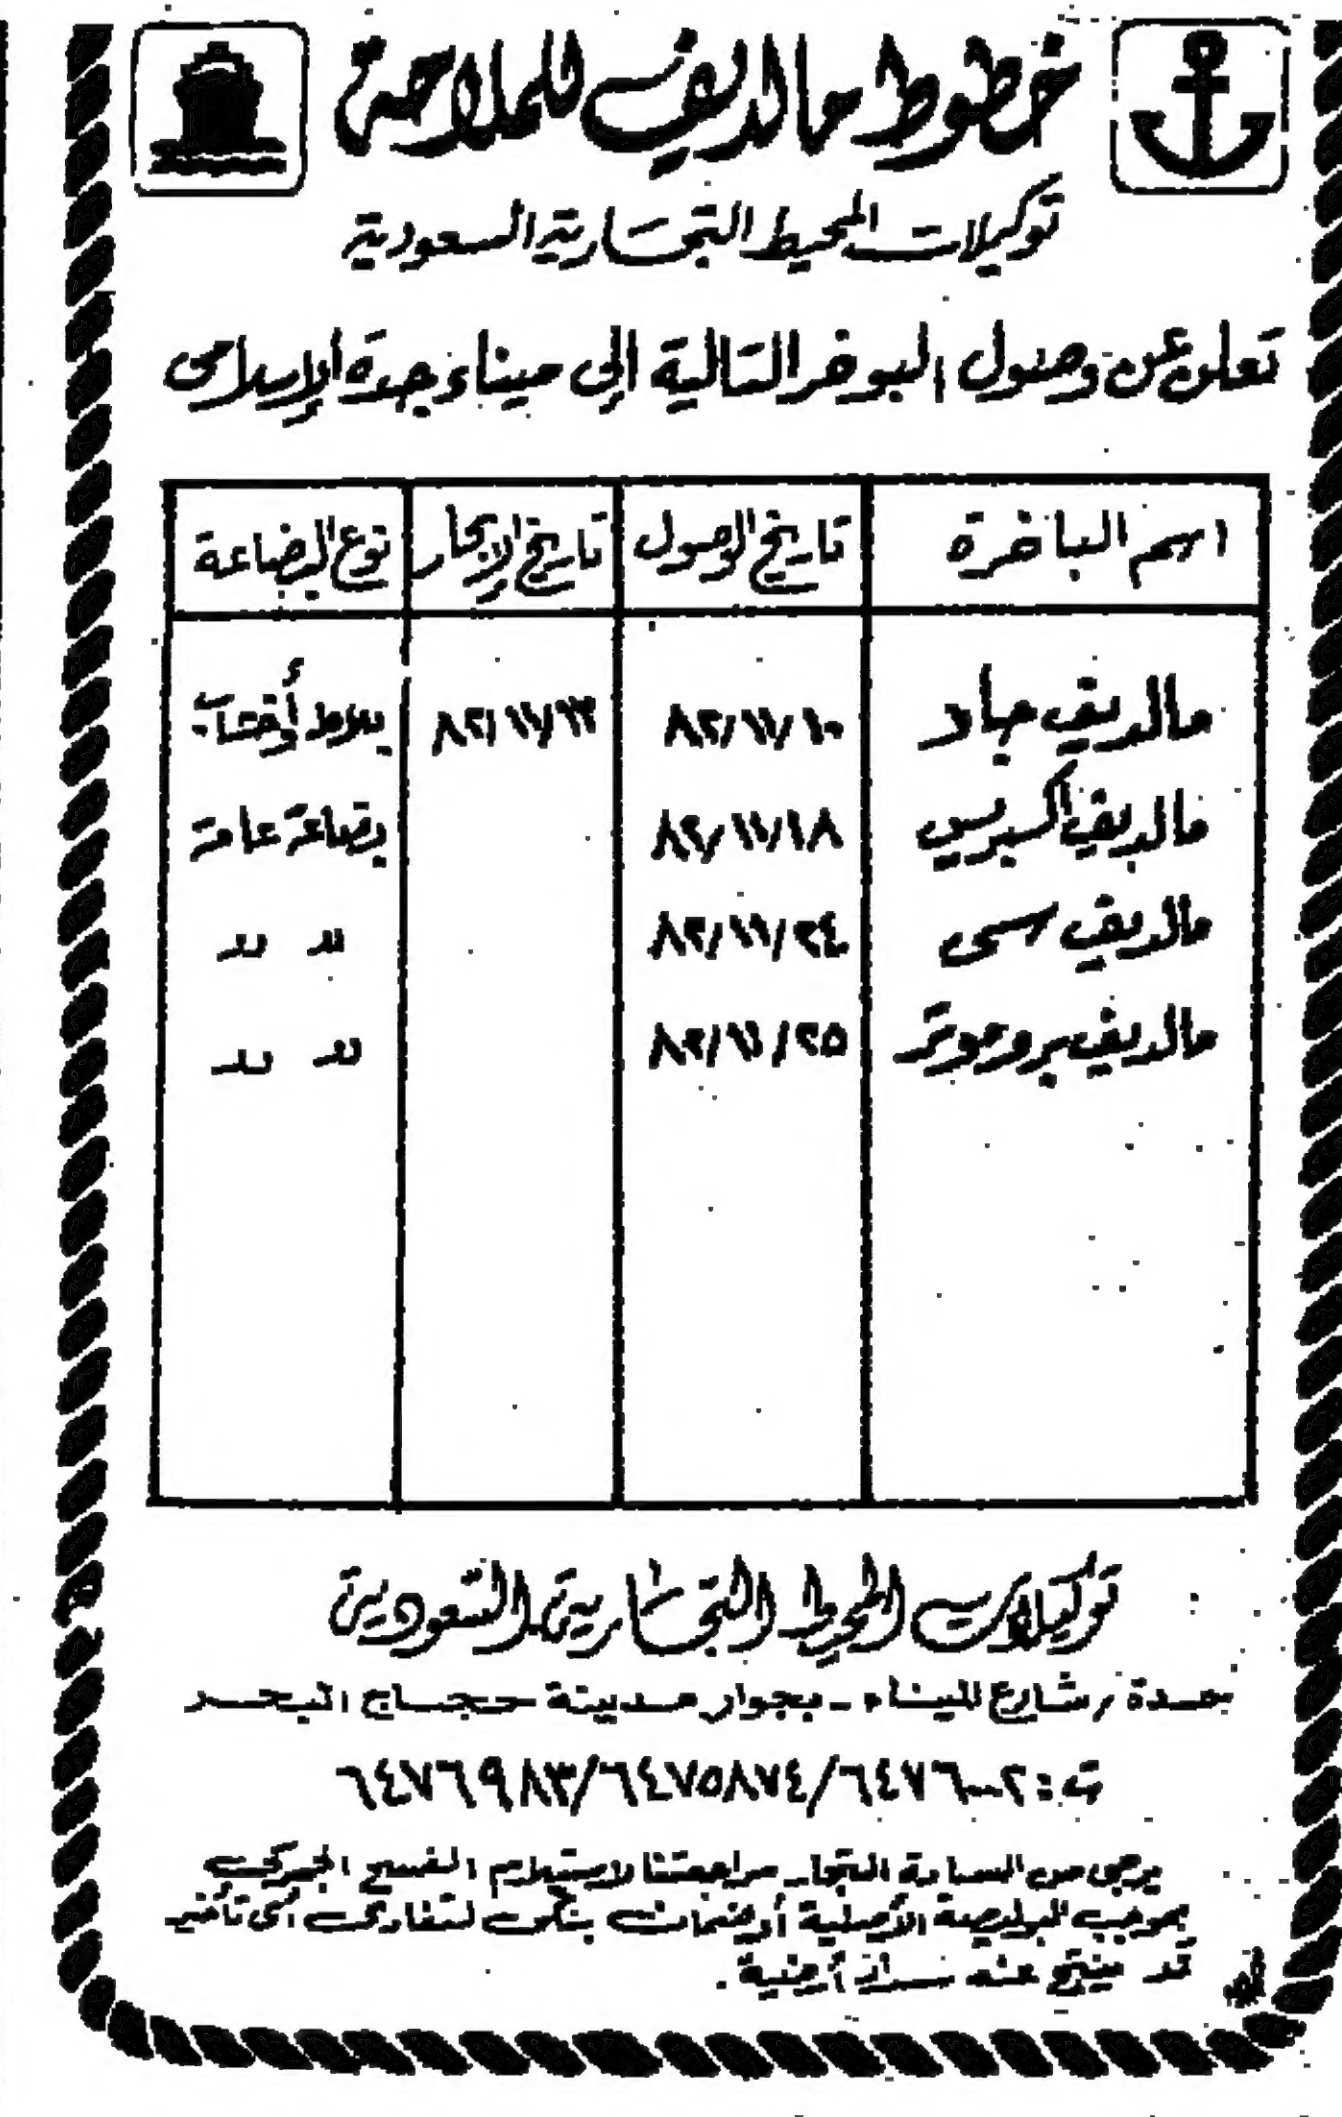 خطوط مالديف للملاحة
توكيلات المحيط التجارية السعودية
تعلن عن وصول البوخر التالية إلى ميناء جدة الإسلامى
اسم الباخرة تاريخ الوصول تاريخ الإبحار نوع البضاعة
مالديف جاد ٨٢/١١/١٠ ٨٢/١١/١٣ بلاط وأخشاب
مالديف اكسبريس ٨٢/١١/١٨ بضاعة عامة
مالديف سى ٨٢/١١/٢٤ " "
مالديف بروموتر ٨٢/١١/٢٥ " "
توكيلات المحيط التجارية السعودية
جدة / شارع الميناء - بجوار مدينة حجاج البحر
ت : ٦٤٧٦٠٠٢/٦٤٧٥٨٧٤/٦٤٧٦٩٨٣
يرجى من السادة التجار مراجعتنا لاستلام الفسح الجمركى
بموجب البوليصة الأصلية أو ضمان بنكى لتفادى أى تأخير
قد ينتج عنه أرضية .